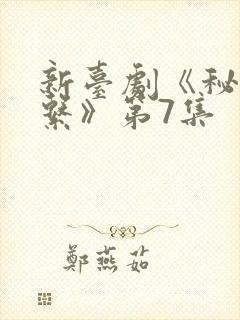 新臺劇《秘
繫》第7集
鄭燕茹